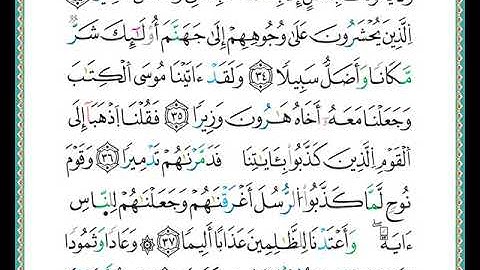 ٱلَّذِينَ يُحْشَرُونَ عَلَىٰ وُجُوهِهِمْ إِلَىٰ جَهَنَّمَ أُو۟لَـٰٓئِكَ شَرٌّ
مَّكَانًا وَأَضَلُّ سَبِيلًا ٣٤ وَلَقَدْ ءَاتَيْنَا مُوسَى ٱلْكِتَـٰبَ
وَجَعَلْنَا مَعَهُۥٓ أَخَاهُ هَـٰرُونَ وَزِيرًا ٣٥ فَقُلْنَا ٱذْهَبَآ إِلَى
ٱلْقَوْمِ ٱلَّذِينَ كَذَّبُوا۟ بِـَٔايَـٰتِنَا فَدَمَّرْنَـٰهُمْ تَدْمِيرًا ٣٦ وَقَوْمَ
نُوحٍ لَّمَّا كَذَّبُوا۟ ٱلرُّسُلَ أَغْرَقْنَـٰهُمْ وَجَعَلْنَـٰهُمْ لِلنَّاسِ
ءَايَةً ۖ وَأَعْتَدْنَا لِلظَّـٰلِمِينَ عَذَابًا أَلِيمًا ٣٧ ۞ وَعَادًا وَثَمُودَا۟